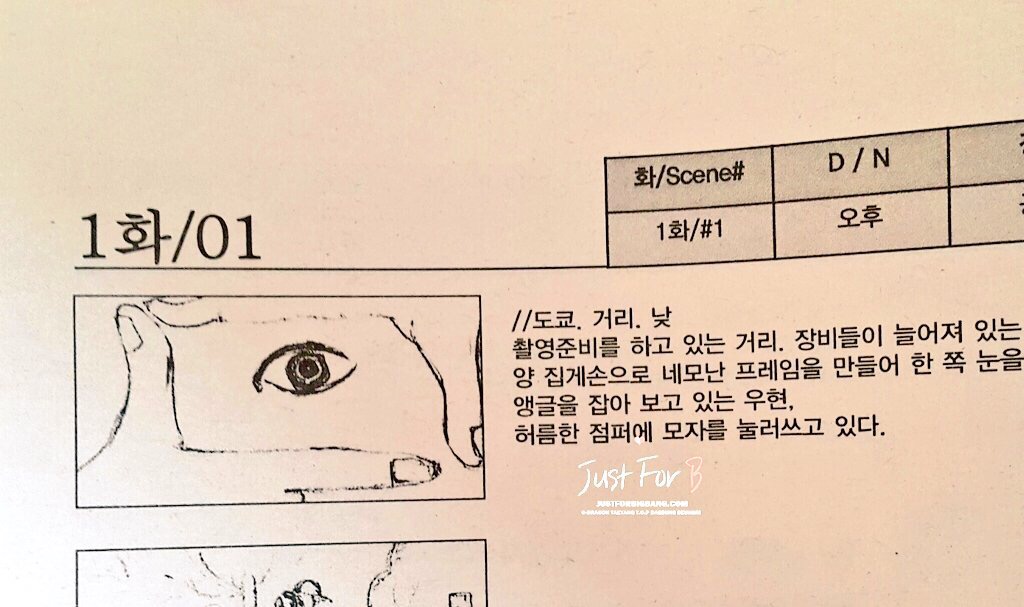 화/Scene#
D / N
1화/#1
오후
1화/01
//도쿄. 거리. 낮
촬영준비를 하고 있는 거리. 장비들이 늘어져 있는
양 집게손으로 네모난 프레임을 만들어 한 쪽 눈을
앵글을 잡아 보고 있는 우현,
허름한 점퍼에 모자를 눌러쓰고 있다.
Just For B
JUSTFORBIGBANG.COM